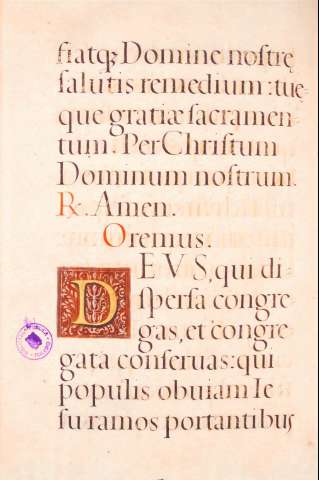 ſiatq; Domine noſtrę
ſalutis remedium : tuę-
que gratiæ ſacramen
tum. Per Chriſtum
Dominum noſtrum.
℟. Amen.
Oremus.
DEVS, qui di-
ſperſa congre-
gas, et congre-
gata conſeruas: qui
populis obuiam Ie
ſu ramos portantibus